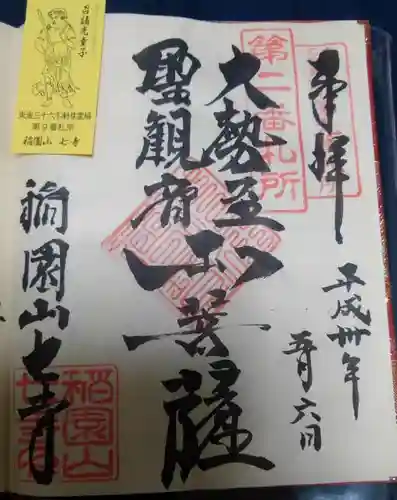 奉拝
平成卅年
五月六日
第二番札所
大勢至
聖観音
菩薩
稲園山七寺
稲園山
七寺
東海三十六不動尊霊場
第9番札所
稲園山 七寺